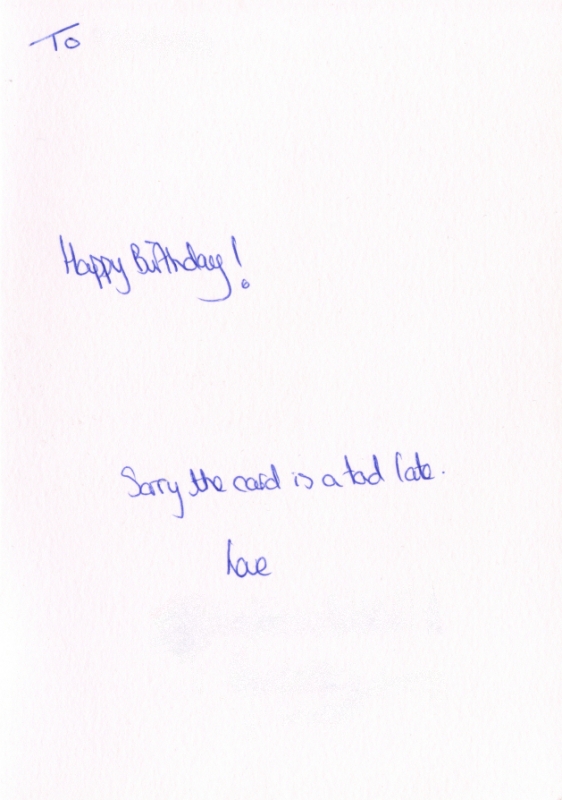 To
Happy Birthday!
Sorry the card is a tad late.
Love